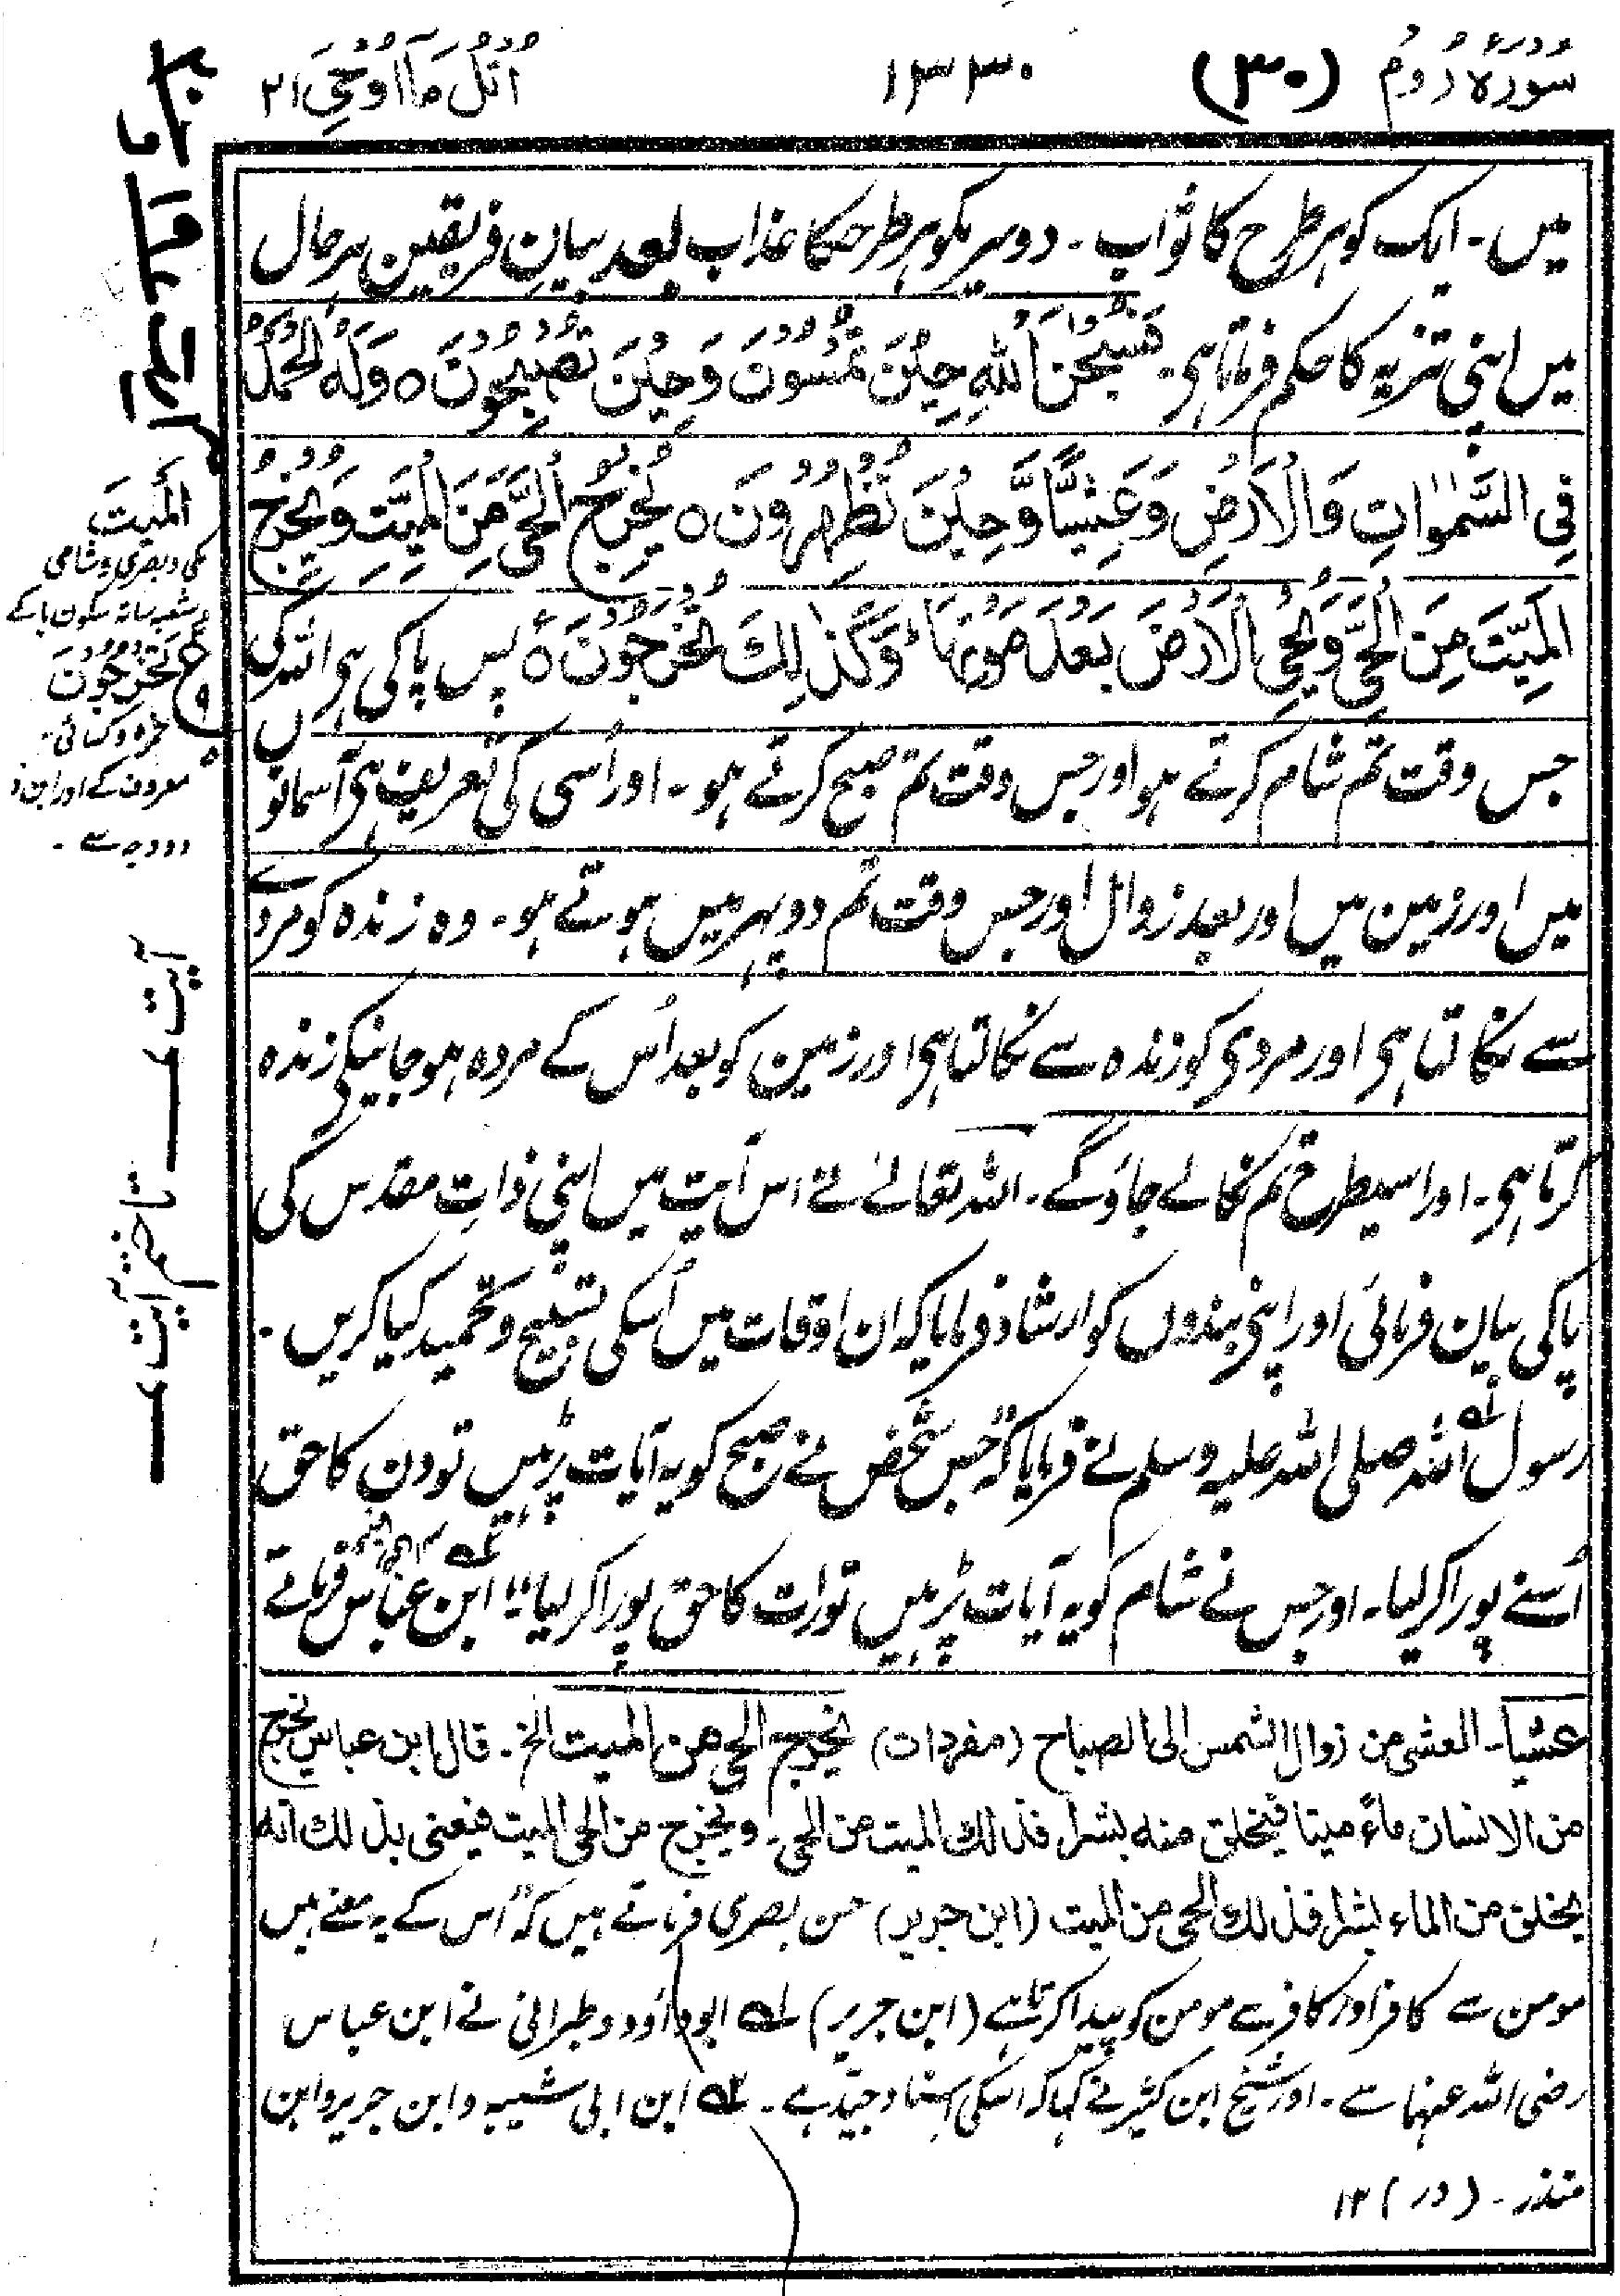 سُوْرَۃُ رُوْم (۳۰) ۱۳۳۰ اُتْلُ مَآ اُوْحِیَ ۲۱
میں۔ ایک کو ہر طرح کا ثواب۔ دوسریکو ہر طرحکا عذاب بعد بیانِ فریقین ہر حال
میں اپنی تنزیہ کا حکم فرماتا ہی۔ فَسُبْحٰنَ اللّٰہِ حِیْنَ تُمْسُوْنَ وَحِیْنَ تُصْبِحُوْنَ ○ وَلَہُ الْحَمْدُ
فِی السَّمٰوٰاتِ وَالْاَرْضِ وَعَشِیًّا وَّحِیْنَ تُظْہِرُوْنَ ○ یُخْرِجُ الْحَیَّ مِنَ الْمَیِّتِ وَیُخْرِجُ
الْمَیِّتَ مِنَ الْحَیِّ وَیُحْیِ الْاَرْضَ بَعْدَ مَوْتِہَا ؕ وَکَذٰلِکَ تُخْرَجُوْنَ ○ پس پاکی ہی اللہ کی
جس وقت تم شام کرتے ہو اور جس وقت تم صبح کرتے ہو۔ اور اُسی کی تعریف ہی آسمانوں
میں اور زمین میں اور بعد زوال اور جس وقت تم دوپہر میں ہوتے ہو۔ وہ زندہ کو مردے
سے نکالتا ہی اور مردی کو زندہ سے نکالتا ہی اور زمین کو بعد اُس کے مردہ ہو جانیکے زندہ
کرتا ہی۔ اور اسیطرح تم نکالے جاؤگے۔ اللہ تعالےٰ نے اس آیت میں اپنی ذاتِ مقدس کی
پاکی بیان فرمائی اور اپنی بندوں کو ارشاد فرمایا کہ ان اوقات میں اُسکی تسبیح و تحمید کیا کریں۔
رسول اللہ صلی اللہ علیہ وسلم نے فرمایا کہ "جس شخص نے صبح کو یہ آیات پڑہیں تو دن کا حق
اُسنے پورا کر لیا۔ اور جس نے شام کو یہ آیات پڑہیں تو رات کا حق پورا کر لیا" ابن عباس فرماتے
عشیا۔ العشی من زوال الشمس الی الصباح (مفردات) یخرج الحی من المیت الخ۔ قال ابن عباس یخرج
من الانسان ماءً میتا فیخلق منہ بشرا فذلک المیت من الحی۔ ویخرج من الحی المیت فیعنی بذلک انہ
یخلق من الماء بشرا فذلک الحی من المیت (ابن جریر) حسن بصری فرماتے ہیں کہ "اس کے یہ معنے ہیں
مومن سے کافر اور کافر سے مومن کو پیدا کرتا ہے (ابن جریر) ۱ہ ابوداؤد و طبرانی نے ابن عباس
رضی اللہ عنہما سے۔ اور شیخ ابن کثیر نے کہا کہ اسکی اسناد جید ہے۔ ۲ہ ابن ابی شیبہ و ابن جریر و ابن
منذر۔ (در) ۱۲
اَلْمَیْتَ
مکی و بصری و شامی
و شعبہ ساتھ سکون یا کے
تَخْرُجُوْنَ
حمزہ و کسائی۔
آیت
تا ختم آیت